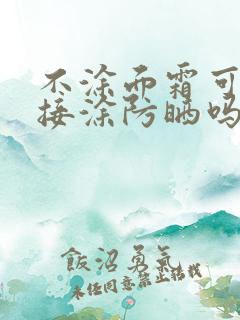 不涂面霜可
接涂防晒吗
飯沼勇氣
未经同意禁止转载